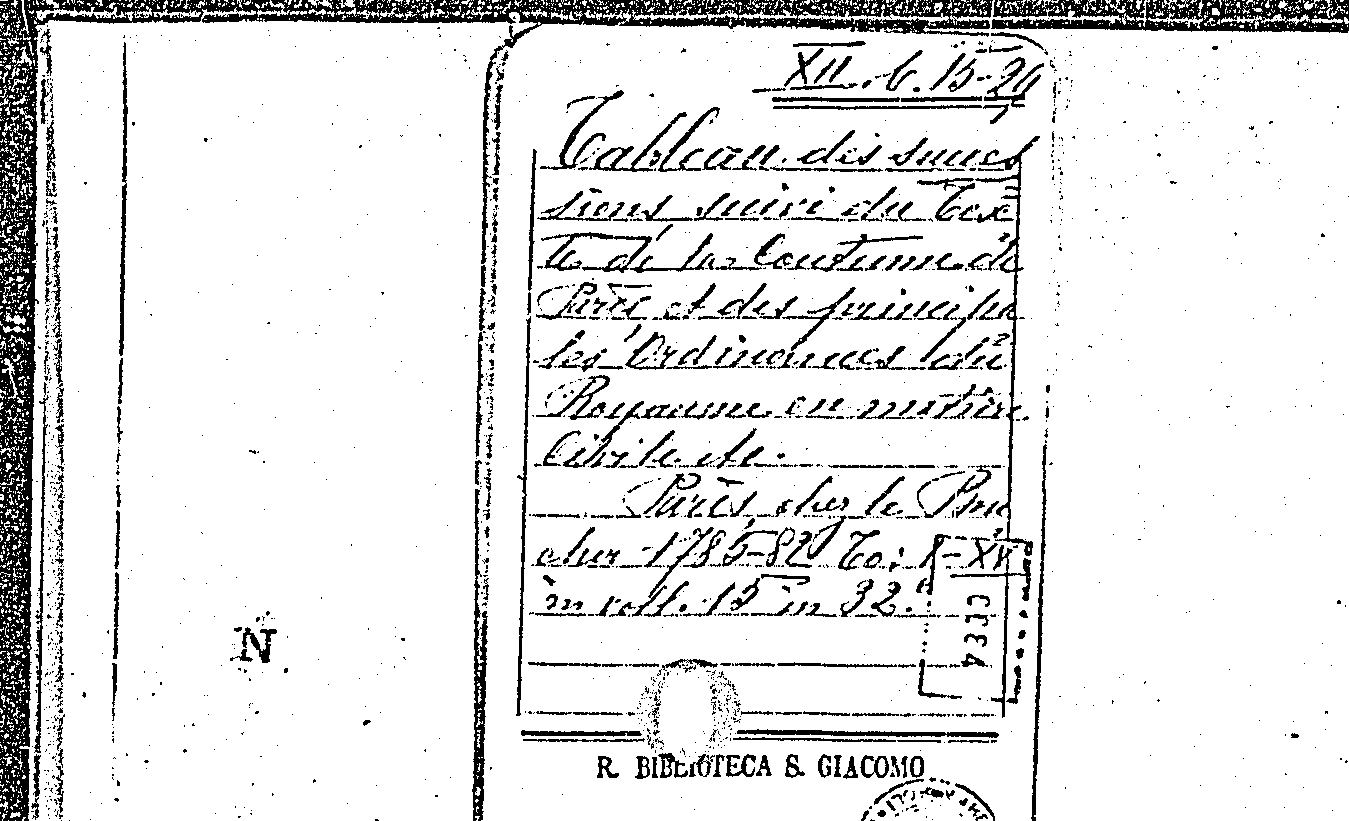 XII. b. 15-29
Tableau des succes
sions, suivi du Tex
te de la Coutume de
Paris et des principa
les Ordinances du
Royaume en matière
Civile etc.
Paris, chez le Bou
cher 1785-82 To: I-XII
in voll. 15 in 32.º
N
R. BIBLIOTECA S. GIACOMO